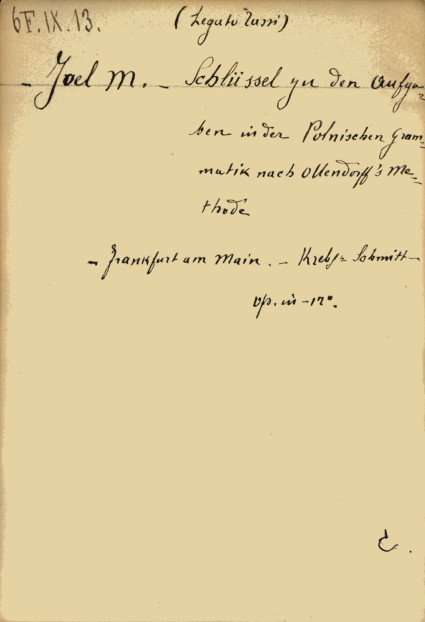 6F.IX.13.
(Legato Tussi)
- Joel M. - Schlüssel zu den Aufga-
ben in der Polnischen Gram-
matik nach Ollendorff's Me-
thode
- Frankfurt am Main. - Krebs-Schmitt
op. in-12°.